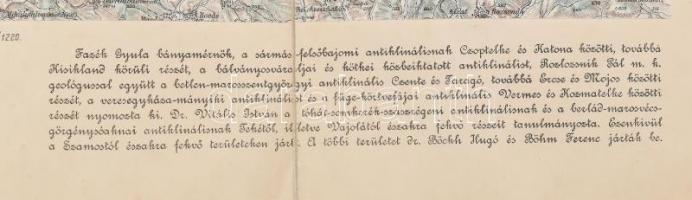 1220.
Fazék Gyula bányamérnök, a sármás-felsőbajomi antiklinálisnak Czoptelke és Katona közötti, továbbá
Kisikland körüli részét, a bálványosváraljai és kötkei közbeiktatott antiklinálist, Rozlozsnik Pál m. k.
geológussal együtt a betlen-marosszentgyörgyi antiklinális Csente és Faragó, továbbá Ercse és Mojos közötti
részét, a veresegyháza-mányiki antiklinálist és a füge-körtvefájai antiklinális Vermes és Kozmatelke közötti
részét nyomozta ki. Dr. Vitális István a tóhát-somkerék-szászrégeni antiklinálisnak és a berlád-marosvécs-
görgénysóaknai antiklinálisnak Tekétől, illetve Vajolától északra fekvő részeit tanulmányozta. Ezenkivül
a Szamostól északra fekvő területeken járt. A többi területet dr. Böckh Hugó és Böhm Ferenc járták be.